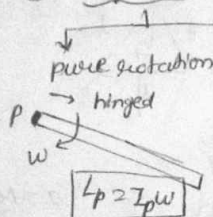 pure rotation
hinged
P
ω
Lp = Ipω